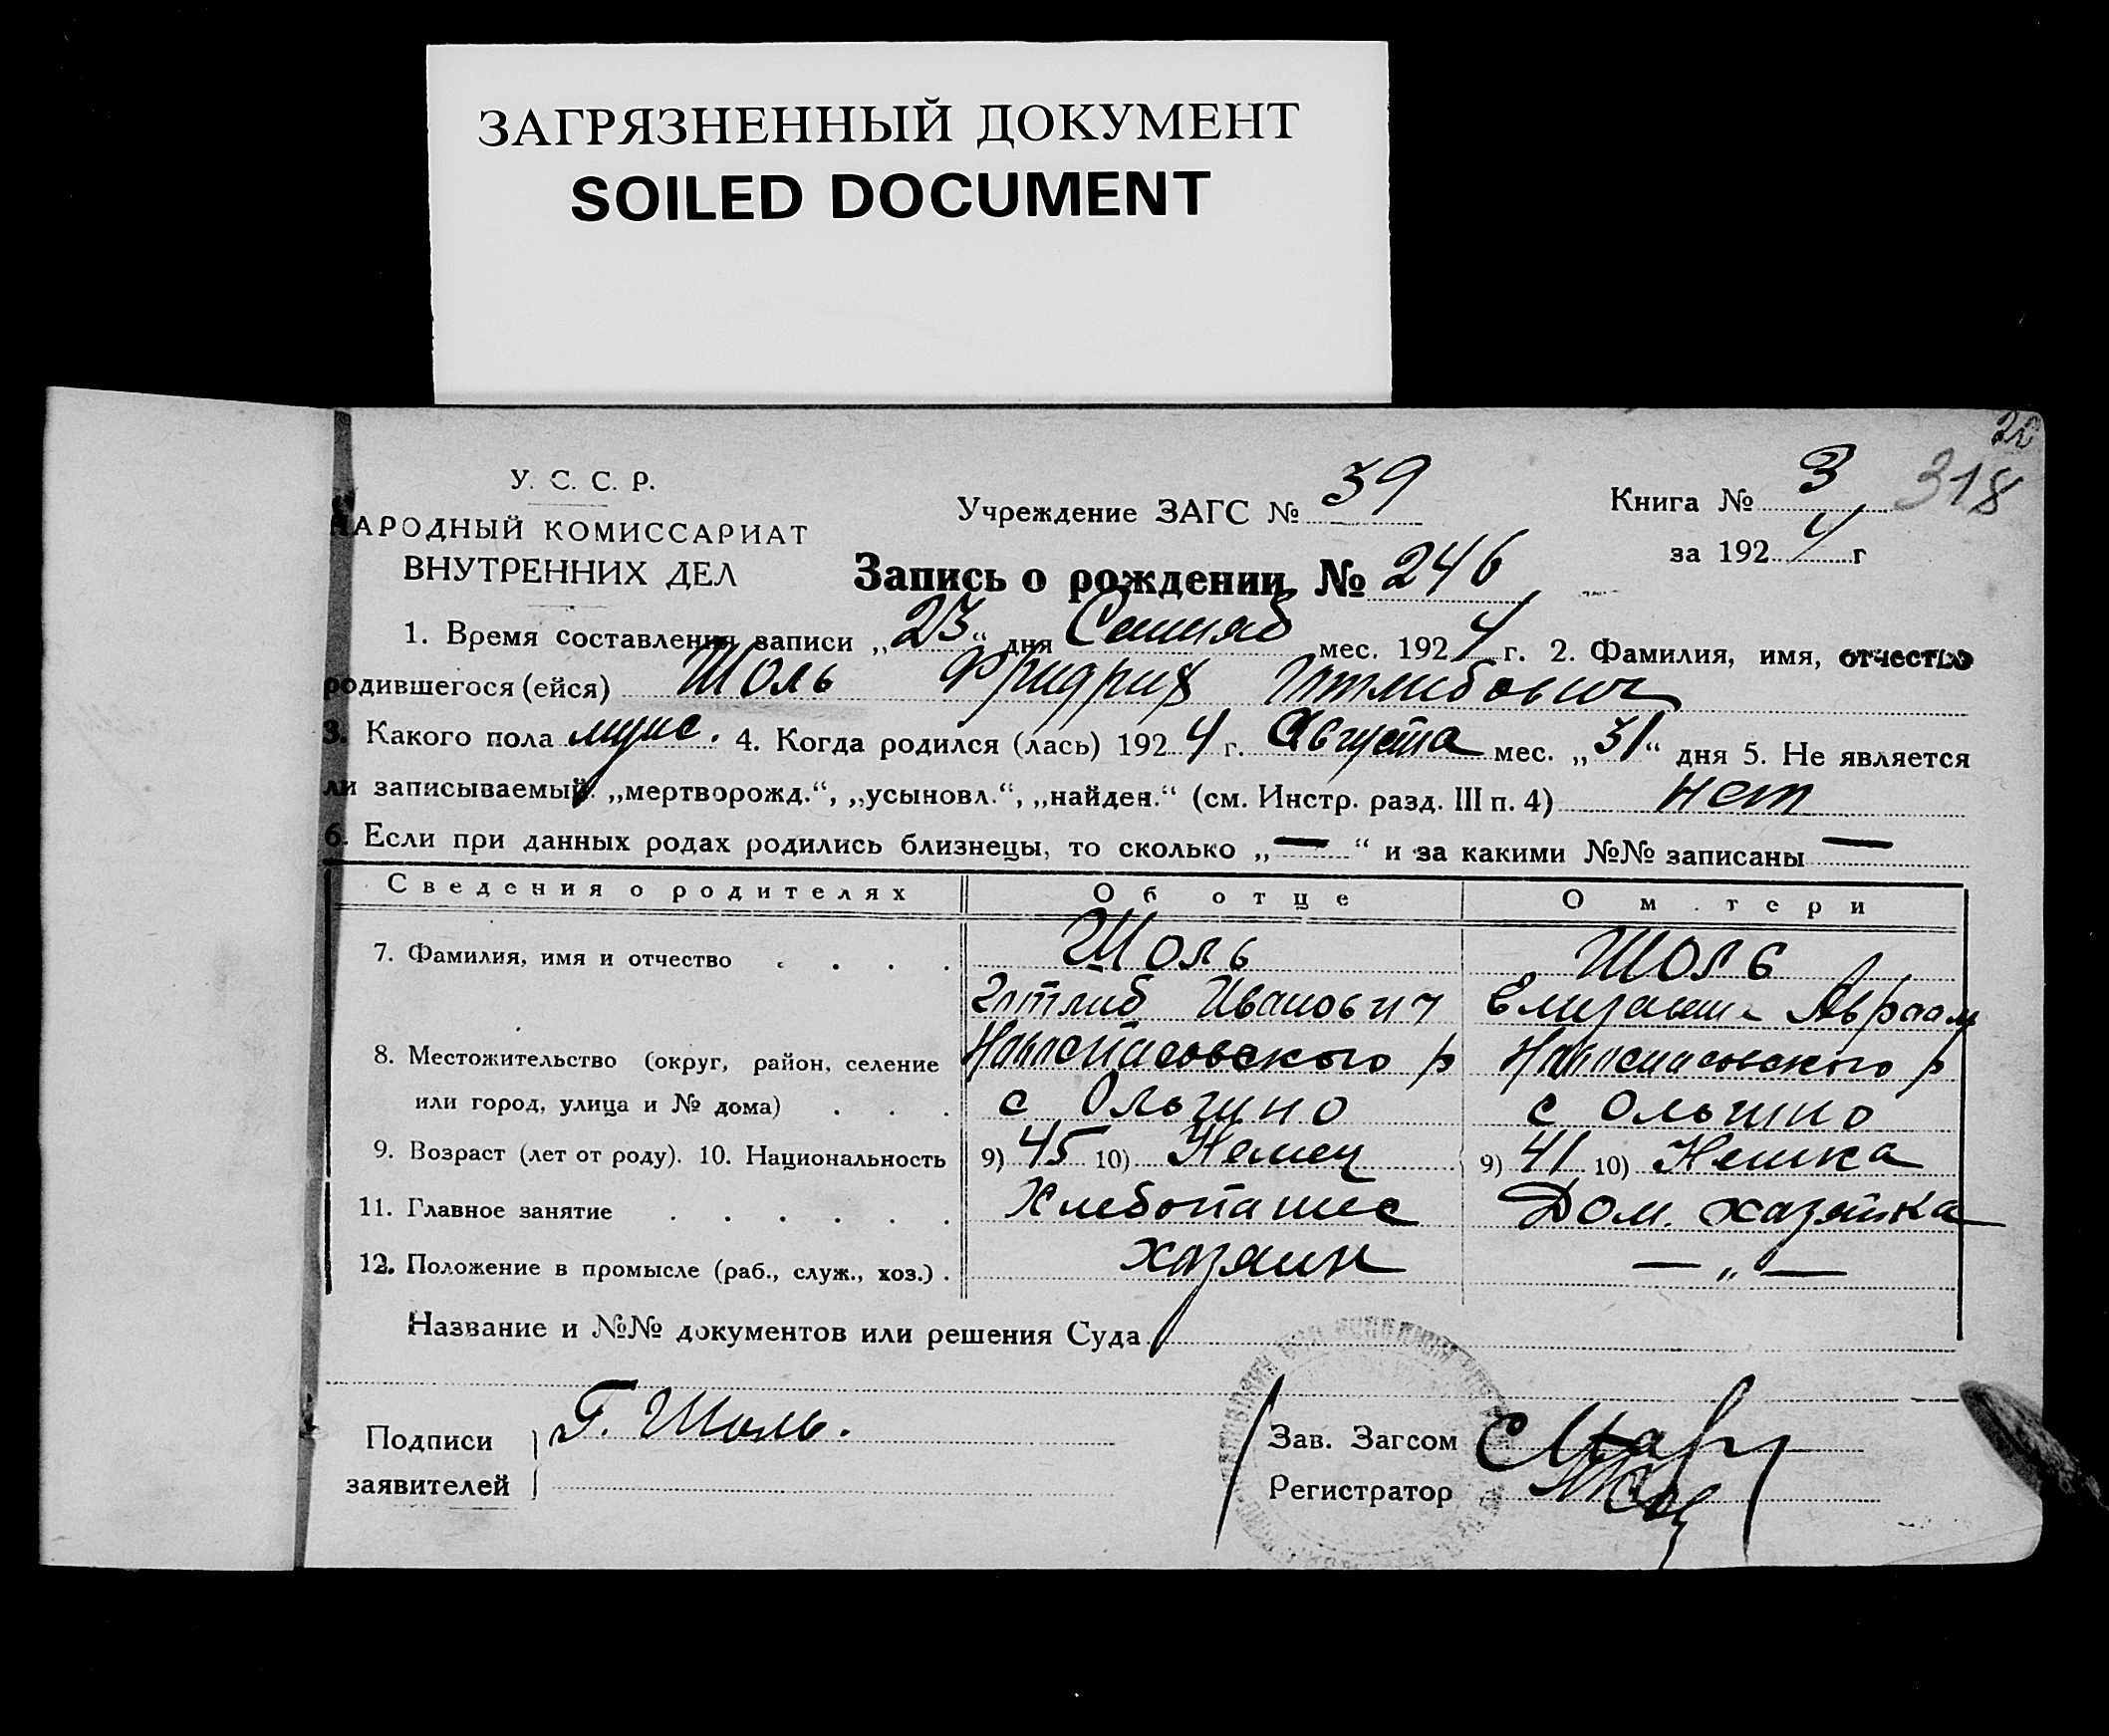 ЗАГРЯЗНЕННЫЙ ДОКУМЕНТ
SOILED DOCUMENT
318
У. С. С. Р.
НАРОДНЫЙ КОМИССАРИАТ
ВНУТРЕННИХ ДЕЛ
Учреждение ЗАГС № 39
Книга № 3
за 1924 г
Запись о рождении № 246
1. Время составления записи „23“ дня Сентяб мес. 1924 г. 2. Фамилия, имя, отчество
родившегося (ейся) Шоль Фридрих Готлибович
3. Какого пола муж. 4. Когда родился (лась) 1924 г. Августа мес. „31“ дня 5. Не является
ли записываемый: „мертворожд.“, „усыновл.“, „найден.“ (см. Инстр. разд. III п. 4) нет
6. Если при данных родах родились близнецы, то сколько „—“ и за какими №№ записаны —
Сведения о родителях Об отце О м тери
7. Фамилия, имя и отчество . . . . Шоль Шоль
Готлиб Иванович Авраам
8. Местожительство (округ, район, селение Новоспасовского р Новоспасовского р
или город, улица и № дома) . . . с Ольгино с Ольгино
9. Возраст (лет от роду). 10. Национальность 9) 45 10) Немец 9) 41 10) Немка
11. Главное занятие . . . . . . Хлебопашес Дом. хазяйка
12. Положение в промысле (раб., служ., хоз.) . хазяин — „ —
Название и №№ документов или решения Суда
Подписи
заявителей
Г. Шоль.
Зав. Загсом
Регистратор